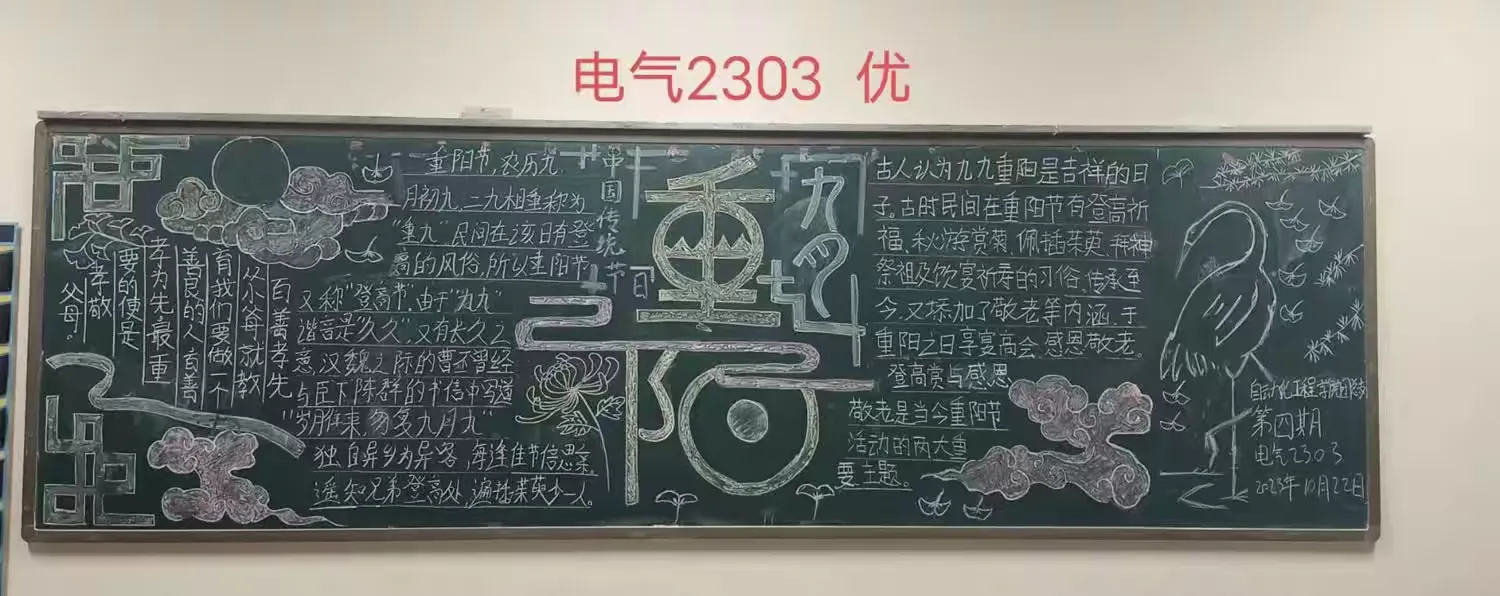 电气2303 优
百善孝先
从小爷就教
育我们要做一个
善良的人 百善
孝为先最重
要的便是
孝敬
父母。
重阳节,农历九
月初九,二九相重称为
"重九",民间在该日有登
高的风俗,所以重阳节
又称"登高节",由于"九九"
谐音是"久久",又有长久之
意,汉魏之际的曹丕曾经
与臣下陈群的书信中写道
"岁往月来,忽复九月九"
独自异乡为异客,每逢佳节倍思亲。
遥知兄弟登高处,遍插茱萸少一人。
中国传统节日
重阳
九九
古人认为九九重阳是吉祥的日
子。古时民间在重阳节有登高祈
福、秋游赏菊、佩插茱萸、拜神
祭祖及饮宴祈寿的习俗。传承至
今,又添加了敬老等内涵,于
重阳之日享宴高会,感恩敬老。
登高赏与感恩
敬老是当今重阳节
活动的两大重
要主题。
自动化工程学院团总支
第四期
电气2303
2023年10月22日